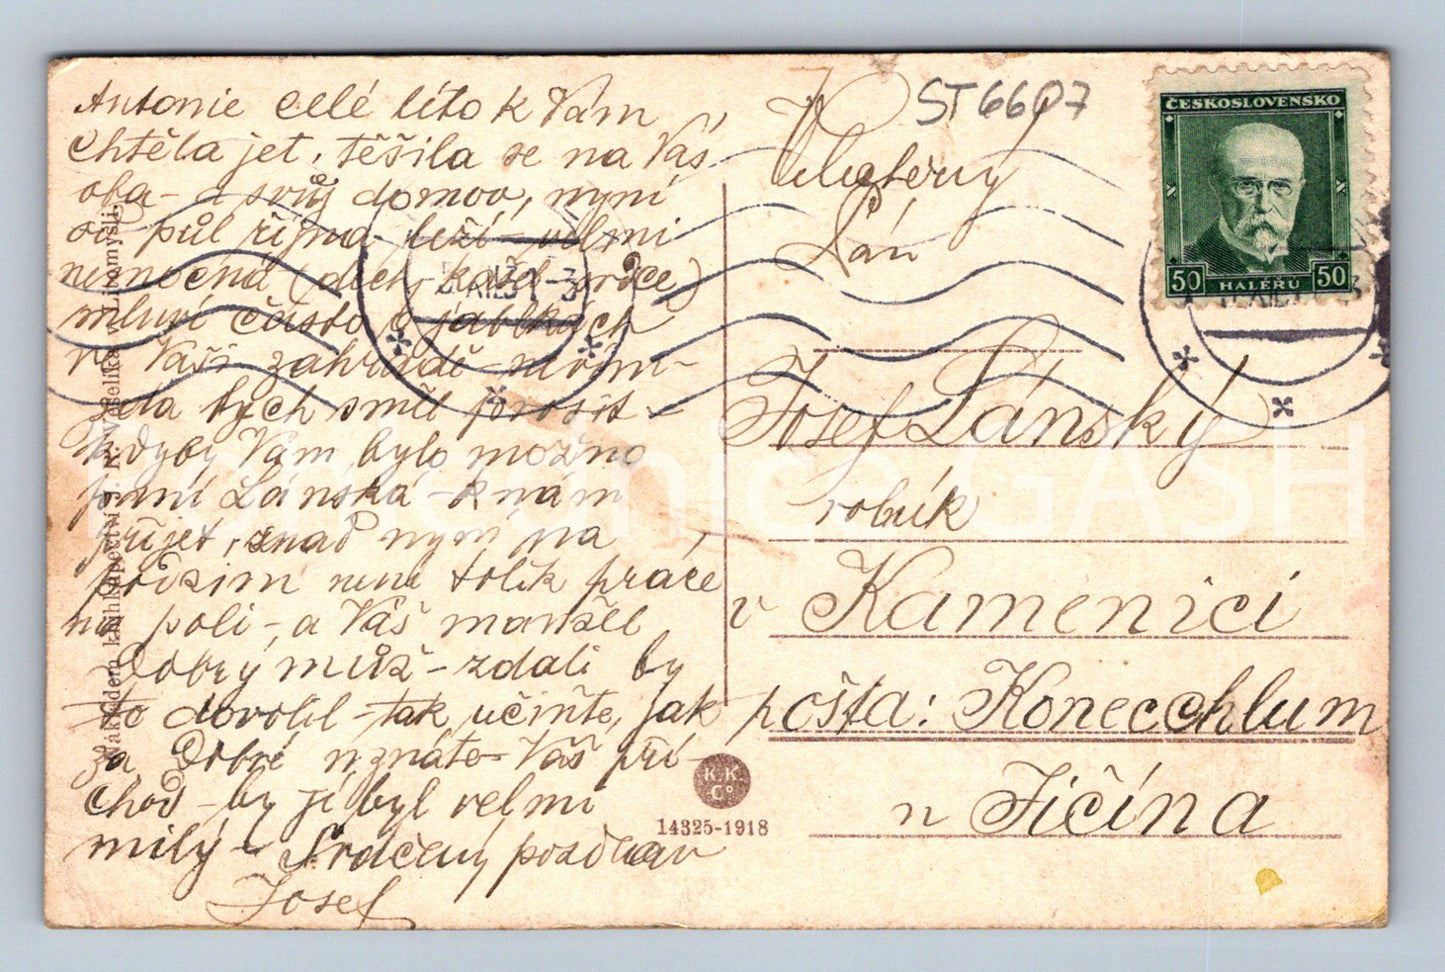 Antonie celé léto k Vám
chtěla jet, těšila se na Vás
oba – a svůj domov, nyní
od půl října leží – velmi
nemocná (dech, kašel srdce)
mluví často o jablkách
ve Vaší zahradě –
bych směl prosit –
Kdyby Vám bylo možno
paní Lánská – k nám
přijet, snad nyní na
podzim není tolik práce
na poli –, a Váš manžel
Dobrý muž – zdali by
to dovolil – tak učiňte, jak
za Dobré uznáte – Váš pří-
chod – by jí byl velmi
milý – Srdečný pozdrav
Josef
Nákladem knihkupectví J. R. Veselíka v Litomyšli.
K.K.
Co
14325-1918
ST6607
ČESKOSLOVENSKO
50 HALÉŘŮ 50
Pán
Josef Lánský
rolník
v Kamenici
pošta: Konecchlum
u Jičína
PohledniceGASH